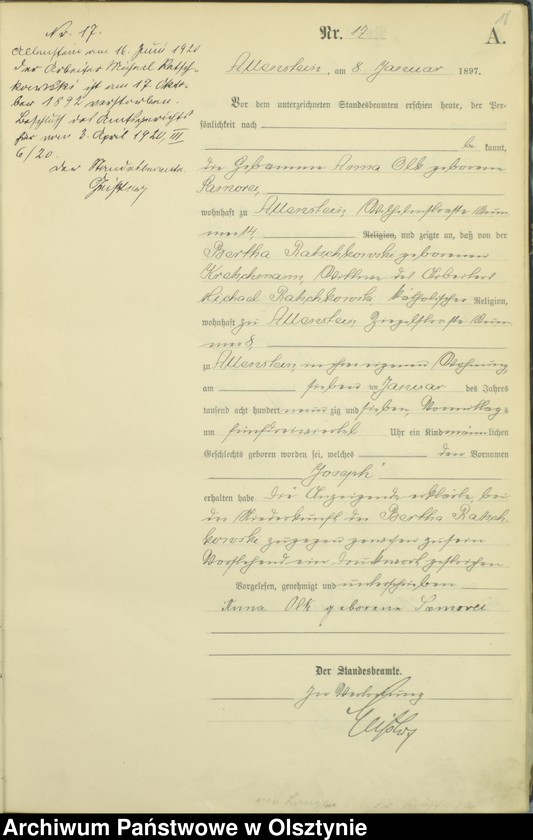 Nr. 17.
Allenstein am 16. Juni 1920
Der Arbeiter Michael Ratsch-
kowski ist am 17 Okto-
ber 1892 verstorben.
Beschluß des Amtsgerichts
hier vom 3. April 1920, III
6/20.
Der Standesbeamte
18
Nr. 17
A.
Allenstein, am 8. Januar 1897.
Vor dem unterzeichneten Standesbeamten erschien heute, der Per-
sönlichkeit nach
be kannt,
die Hebamme Anna Olk geborene
Samorei,
wohnhaft zu Allenstein, Wilhelmstraße Num
mer 14,
Religion, und zeigte an, daß von der
Bertha Ratschkowski geborenen
Kretschmann, Wittwe des Arbeiters
Michael Ratschkowski, katholischer Religion,
wohnhaft zu Allenstein, Ziegelstraße Num
mer 8,
zu Allenstein in ihrer eigenen Wohnung
am sieben ten Januar des Jahres
tausend acht hundert neun zig und sieben, Vormittags
um fünf dreiviertel Uhr ein Kind männlichen
Geschlechts geboren worden sei, welches den Vornamen
Joseph
erhalten habe. Die Anzeigende erklärte, bei
der Niederkunft der Bertha Ratsch
kowski zugegen gewesen zu sein
Vorstehend ein Druckwort gestrichen
Vorgelesen, genehmigt und unterschrieben
Anna Olk geborene Samorei
Der Standesbeamte.
In Vertretung
Archiwum Państwowe w Olsztynie